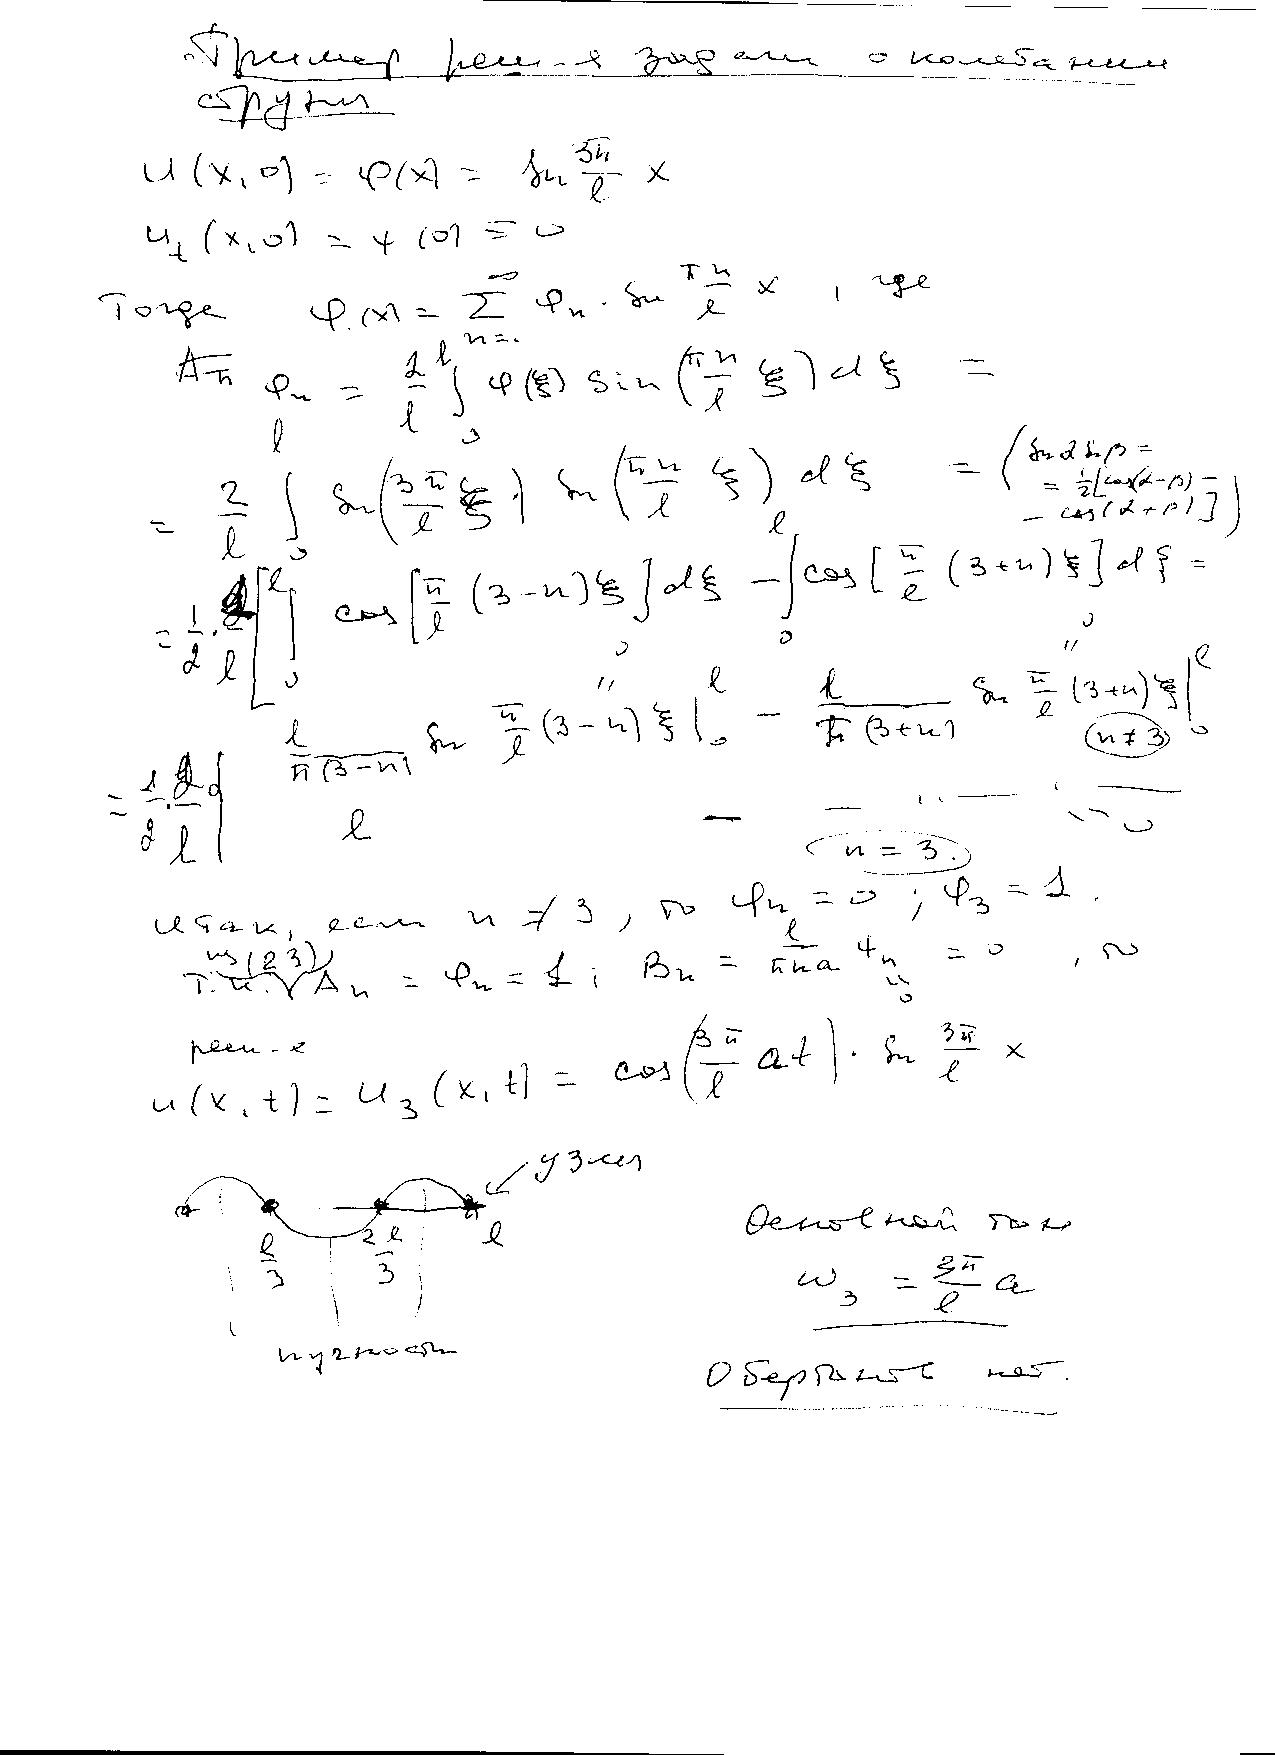 Пример реш-я задачи о колебании
струны
u(x,0) = φ(x) = sin 3π/l x
u_t(x,0) = ψ(0) ≡ 0
Тогда φ(x) = ∑_{n=1}^∞ φ_n · sin πn/l x , где
φ_n = 2/l ∫_0^l φ(ξ) sin(πn/l ξ) dξ =
= 2/l ∫_0^l sin(3π/l ξ) · sin(πn/l ξ) dξ = (sin α sin β =
= 1/2[cos(α-β) -
- cos(α+β)])
= 1/2 · 2/l [∫_0^l cos[π/l (3-n)ξ] dξ - ∫_0^l cos[π/l (3+n)ξ] dξ =
l/π(3-n) sin π/l (3-n)ξ |_0^l - l/π(3+n) sin π/l (3+n)ξ |_0^l
n ≠ 3
= 1/2 · 2/l { l - — " — " —
0
n = 3.
Итак, если n ≠ 3, то φ_n = 0 ; φ_3 = 1.
из (23)
Т.к. √ A_n = φ_n = 1 ; B_n = l/πna ψ_n = 0 , то
0
реш-е
u(x,t) = u_3(x,t) = cos(3π/l at) · sin 3π/l x
узлы
l/3 2l/3 l
пучности
Основной тон
ω_3 = 3π/l a
Обертонов нет.